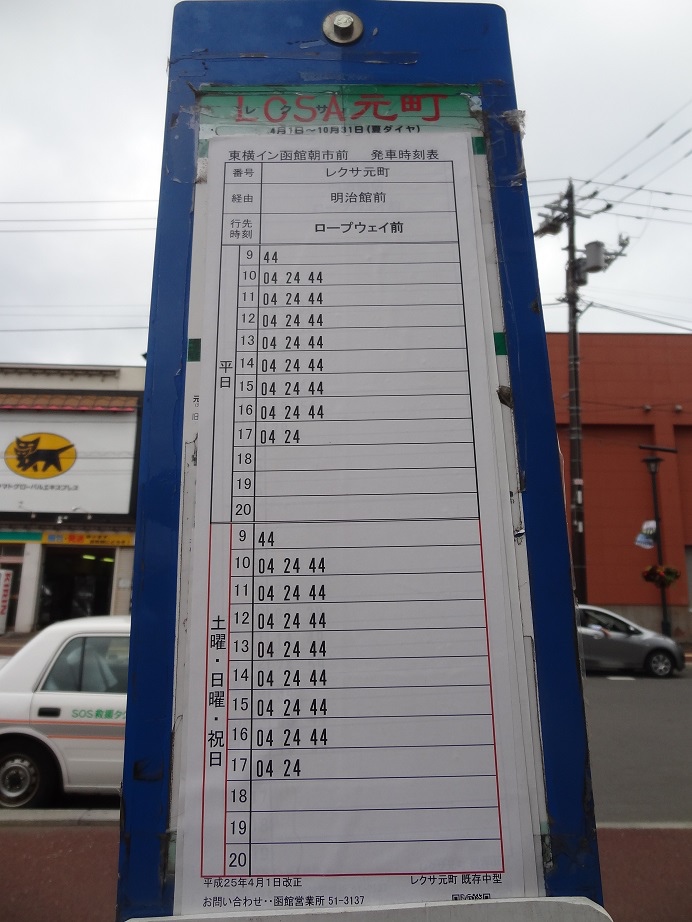 LCSA元町
レクサ
4月1日～10月31日(夏ダイヤ)
東横イン函館朝市前 発車時刻表
番号 レクサ元町
経由 明治館前
行先
時刻 ロープウェイ前
平日
9 44
10 04 24 44
11 04 24 44
12 04 24 44
13 04 24 44
14 04 24 44
15 04 24 44
16 04 24 44
17 04 24
18
19
20
土曜・日曜・祝日
9 44
10 04 24 44
11 04 24 44
12 04 24 44
13 04 24 44
14 04 24 44
15 04 24 44
16 04 24 44
17 04 24
18
19
20
平成25年4月1日改正 レクサ元町 既存中型
お問い合わせ・・函館営業所 51-3137
元
旧
ヤマトグローバルエキスプレス
KIRIN
SOS救援タク